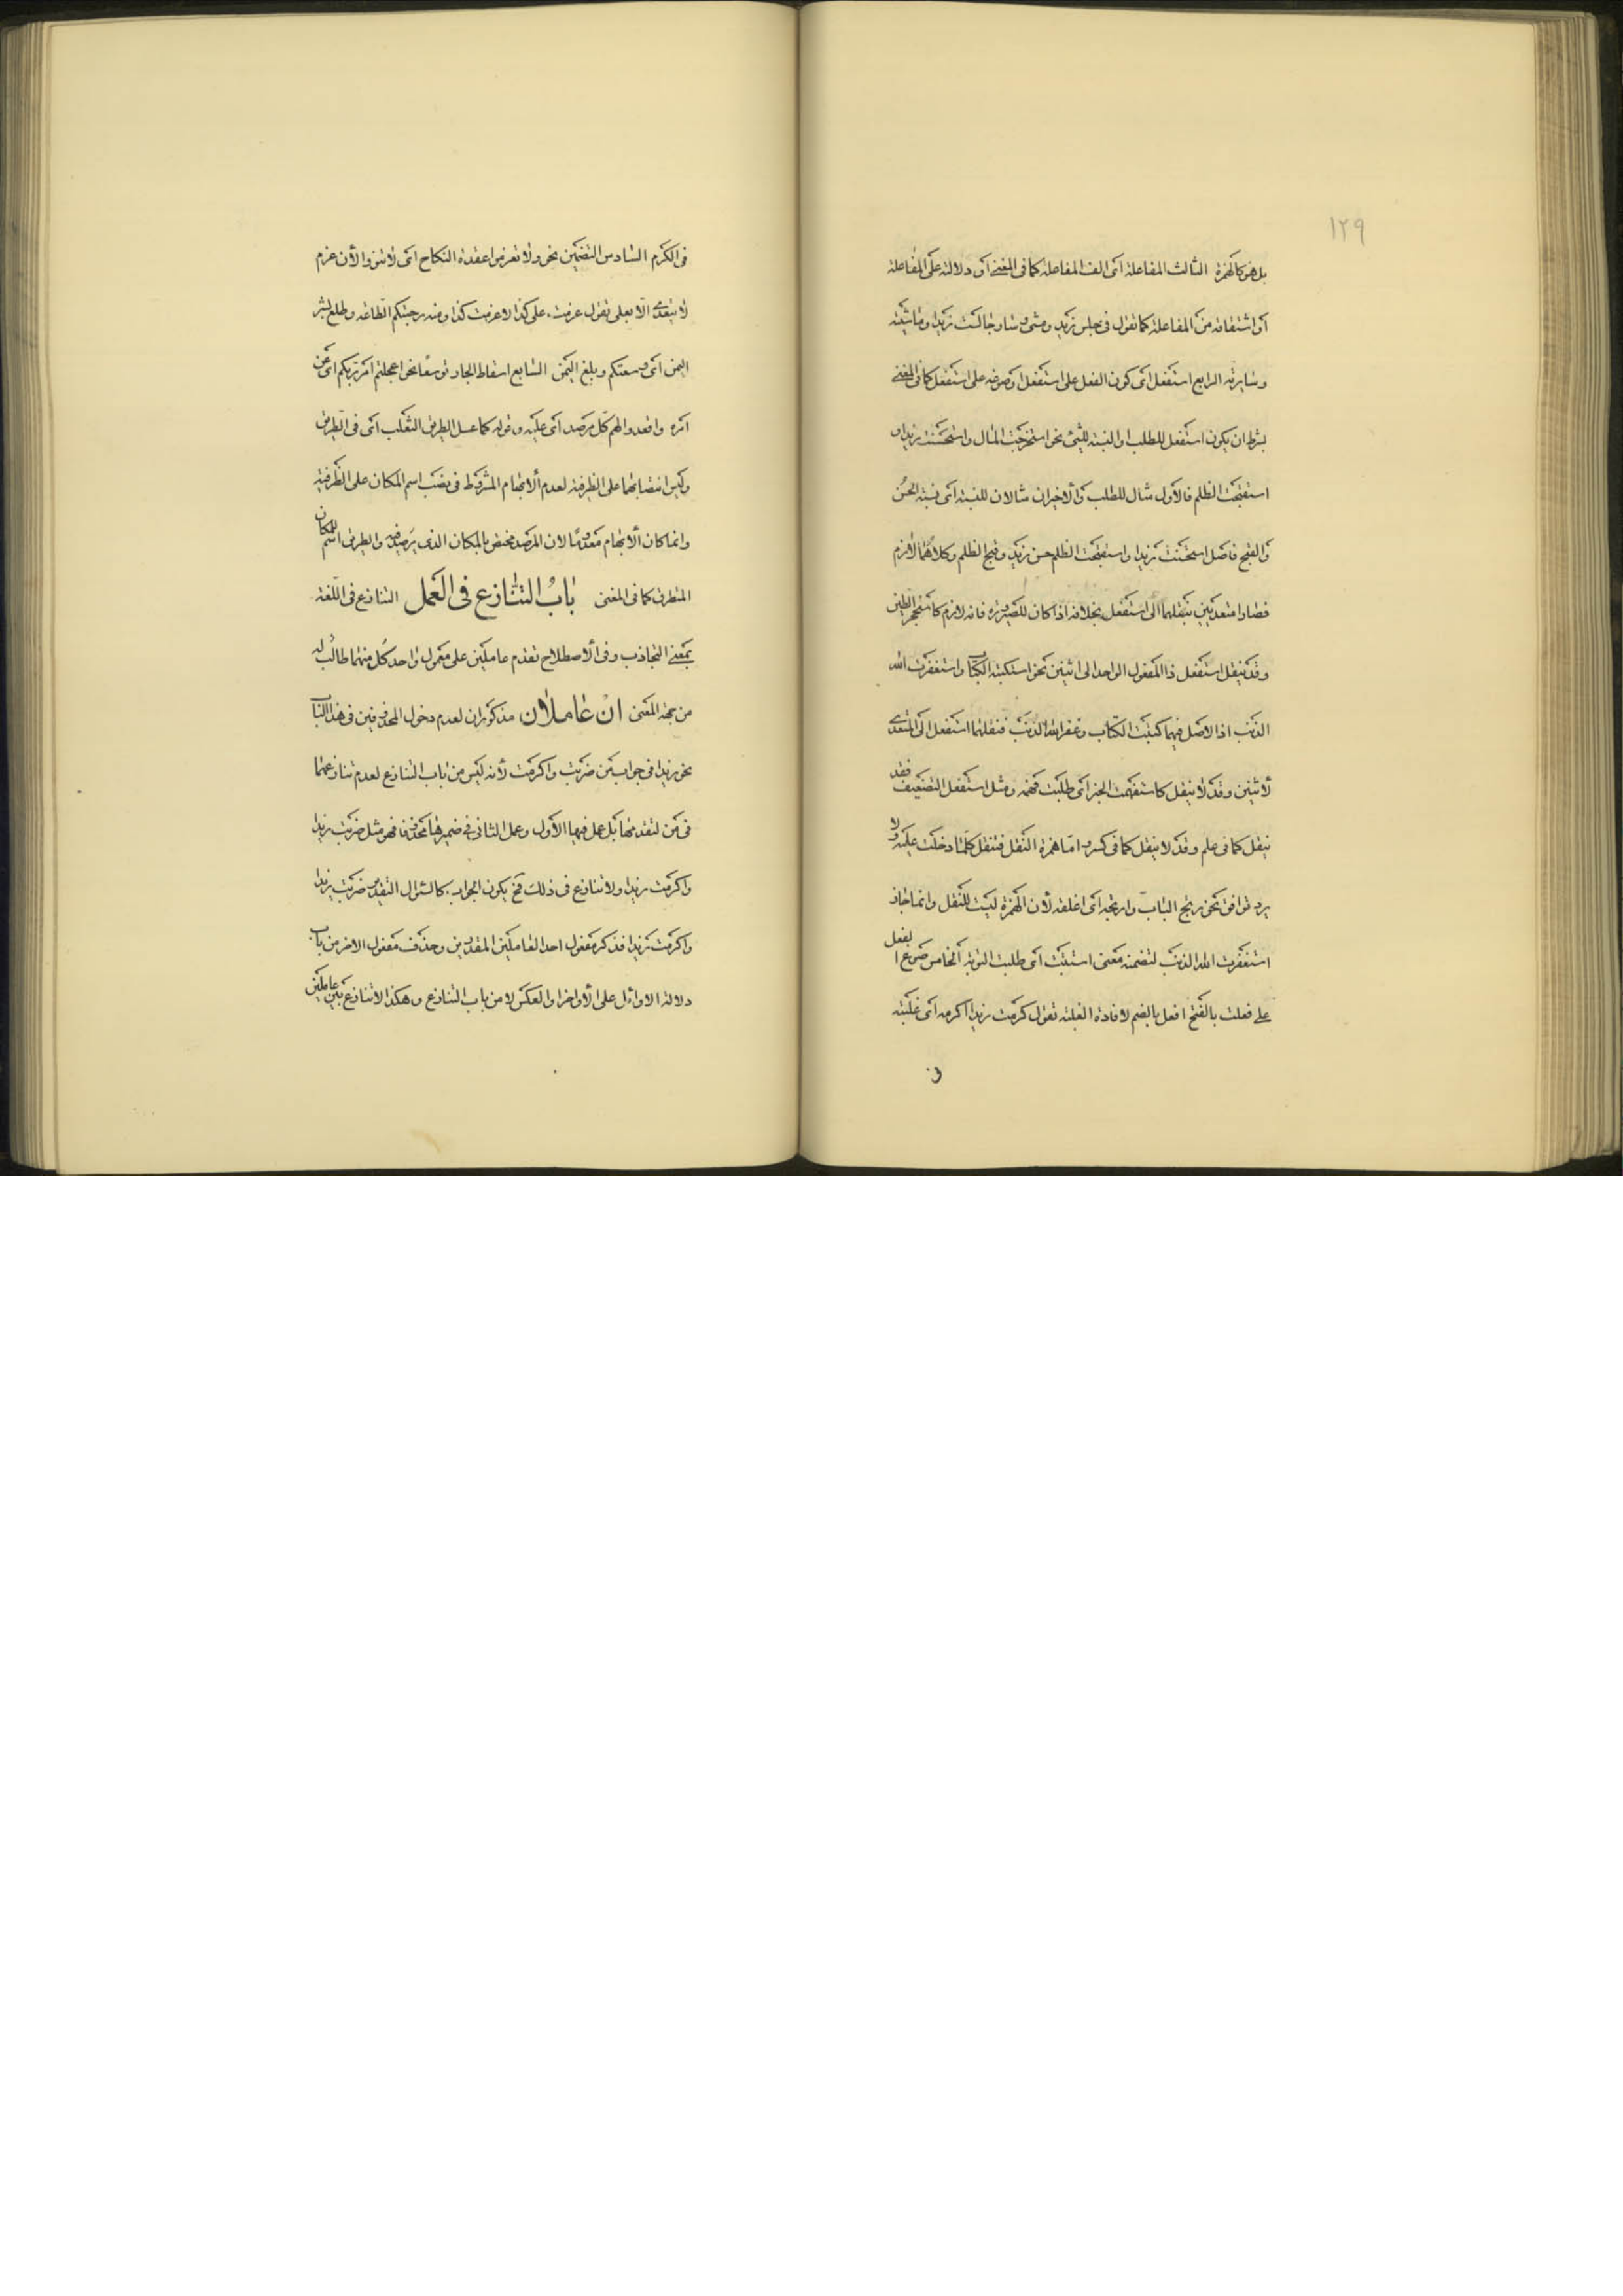 ١٢٩
بل هو كالهمزة الثالث المفاعلة اى الف المفاعلة كما فى المغنى او دلالته على المفاعلة
او اشتقاقه من المفاعلة كما تقول فى جلس زيد ومشى وسار جالست زيدا وماشيته
وسايرته الرابع استفعل اى كون الفعل على استفعل او صوغه على استفعل كما فى المغنى
بشرط ان يكون استفعل للطلب او النسبة للشئ نحو استخرجت المال واستحسنت زيدا و
استقبحت الظلم فالأول مثال للطلب والأخيران مثالان للنسبة اى نسبة الحسن
والقبح فاصل استحسنت زيدا واستقبحت الظلم حسن زيد وقبح الظلم وكلاهما لازم
فصارا متعديين بنقلهما الى استفعل بخلافه اذا كان للصيرورة فانه لازم كاستحجر الطين
وقد ينقل استفعل ذا المفعول الواحد الى اثنين نحو استكتبته الكتاب واستغفرت الله
الذنب اذ الاصل فيهما كتبت الكتاب وغفر الله الذنب فنقلهما استفعل الى المتعدى
لأثنين وقد لا ينقل كاستفهمت الخبر اى طلبت فهمه ومثل استفعل التضعيف فقد
ينقل كما فى علم وقد لا ينقل كما فى كسر و اما همزة النقل فتنقل كلما دخلت عليه ولا
يرد توافق نحو رتج الباب وارتجه اى اغلقه لأن الهمزة ليست للنقل وانما جاز
استغفرت الله الذنب لتضمنه معنى استتبت اى طلبت التوبة الخامس صوغ الفعل
على فعلت بالفتح افعل بالضم لافادة الغلبة تقول كرمت زيدا اكرمه اى غلبته
فى
فى الكرم السادس التضمين نحو ولا تعزموا عقدة النكاح اى لا تنووا لأن عزم
لا يتعدى الا بعلى تقول عزمت على كذا لا عزمت كذا ومنه رحبتكم الطاعة وطلع بشر
اليمن اى وسعتكم وبلغ اليمن السابع اسقاط الجار توسعا نحو اعجلتم امر ربكم اى عن
امره واقعدوا لهم كل مرصد اى عليه وقوله كما عسل الطريق الثعلب اى فى الطريق
وليس انتصابهما على الظرفية لعدم ألابهام المشروط فى نصب اسم المكان على الظرفية
وانما كان ألابهام معدوما لان المرصد مختص بالمكان الذى يرصد فيه والطريق اسم للمكان
المتطرق كما فى المغنى باب التنازع فى العمل التنازع فى اللغة
بمعنى التجاذب وفى ألاصطلاح تقدم عاملين على معمول واحد كل منهما طالب له
من جهة المعنى ان عاملان مذكوران لعدم دخول المحذوفين فى هذا الباب
نحو زيدا فى جواب من ضربت واكرمت لأنه ليس من باب التنازع لعدم تنازعهما
فى من لتقدمها بل عمل فيها الأول وعمل الثانى فى ضميرها محذوفا فهو مثل ضربت زيدا
واكرمت زيدا ولا تنازع فى ذلك فح يكون الجواب كالسئوال التقدير ضربت زيدا
واكرمت زيدا فذكر مفعول احد العاملين المقدرين وحذف مفعول الاخر من باب
دلالة الاوائل على الأواخر او العكس لا من باب التنازع وهكذا لا تنازع بين عاملين